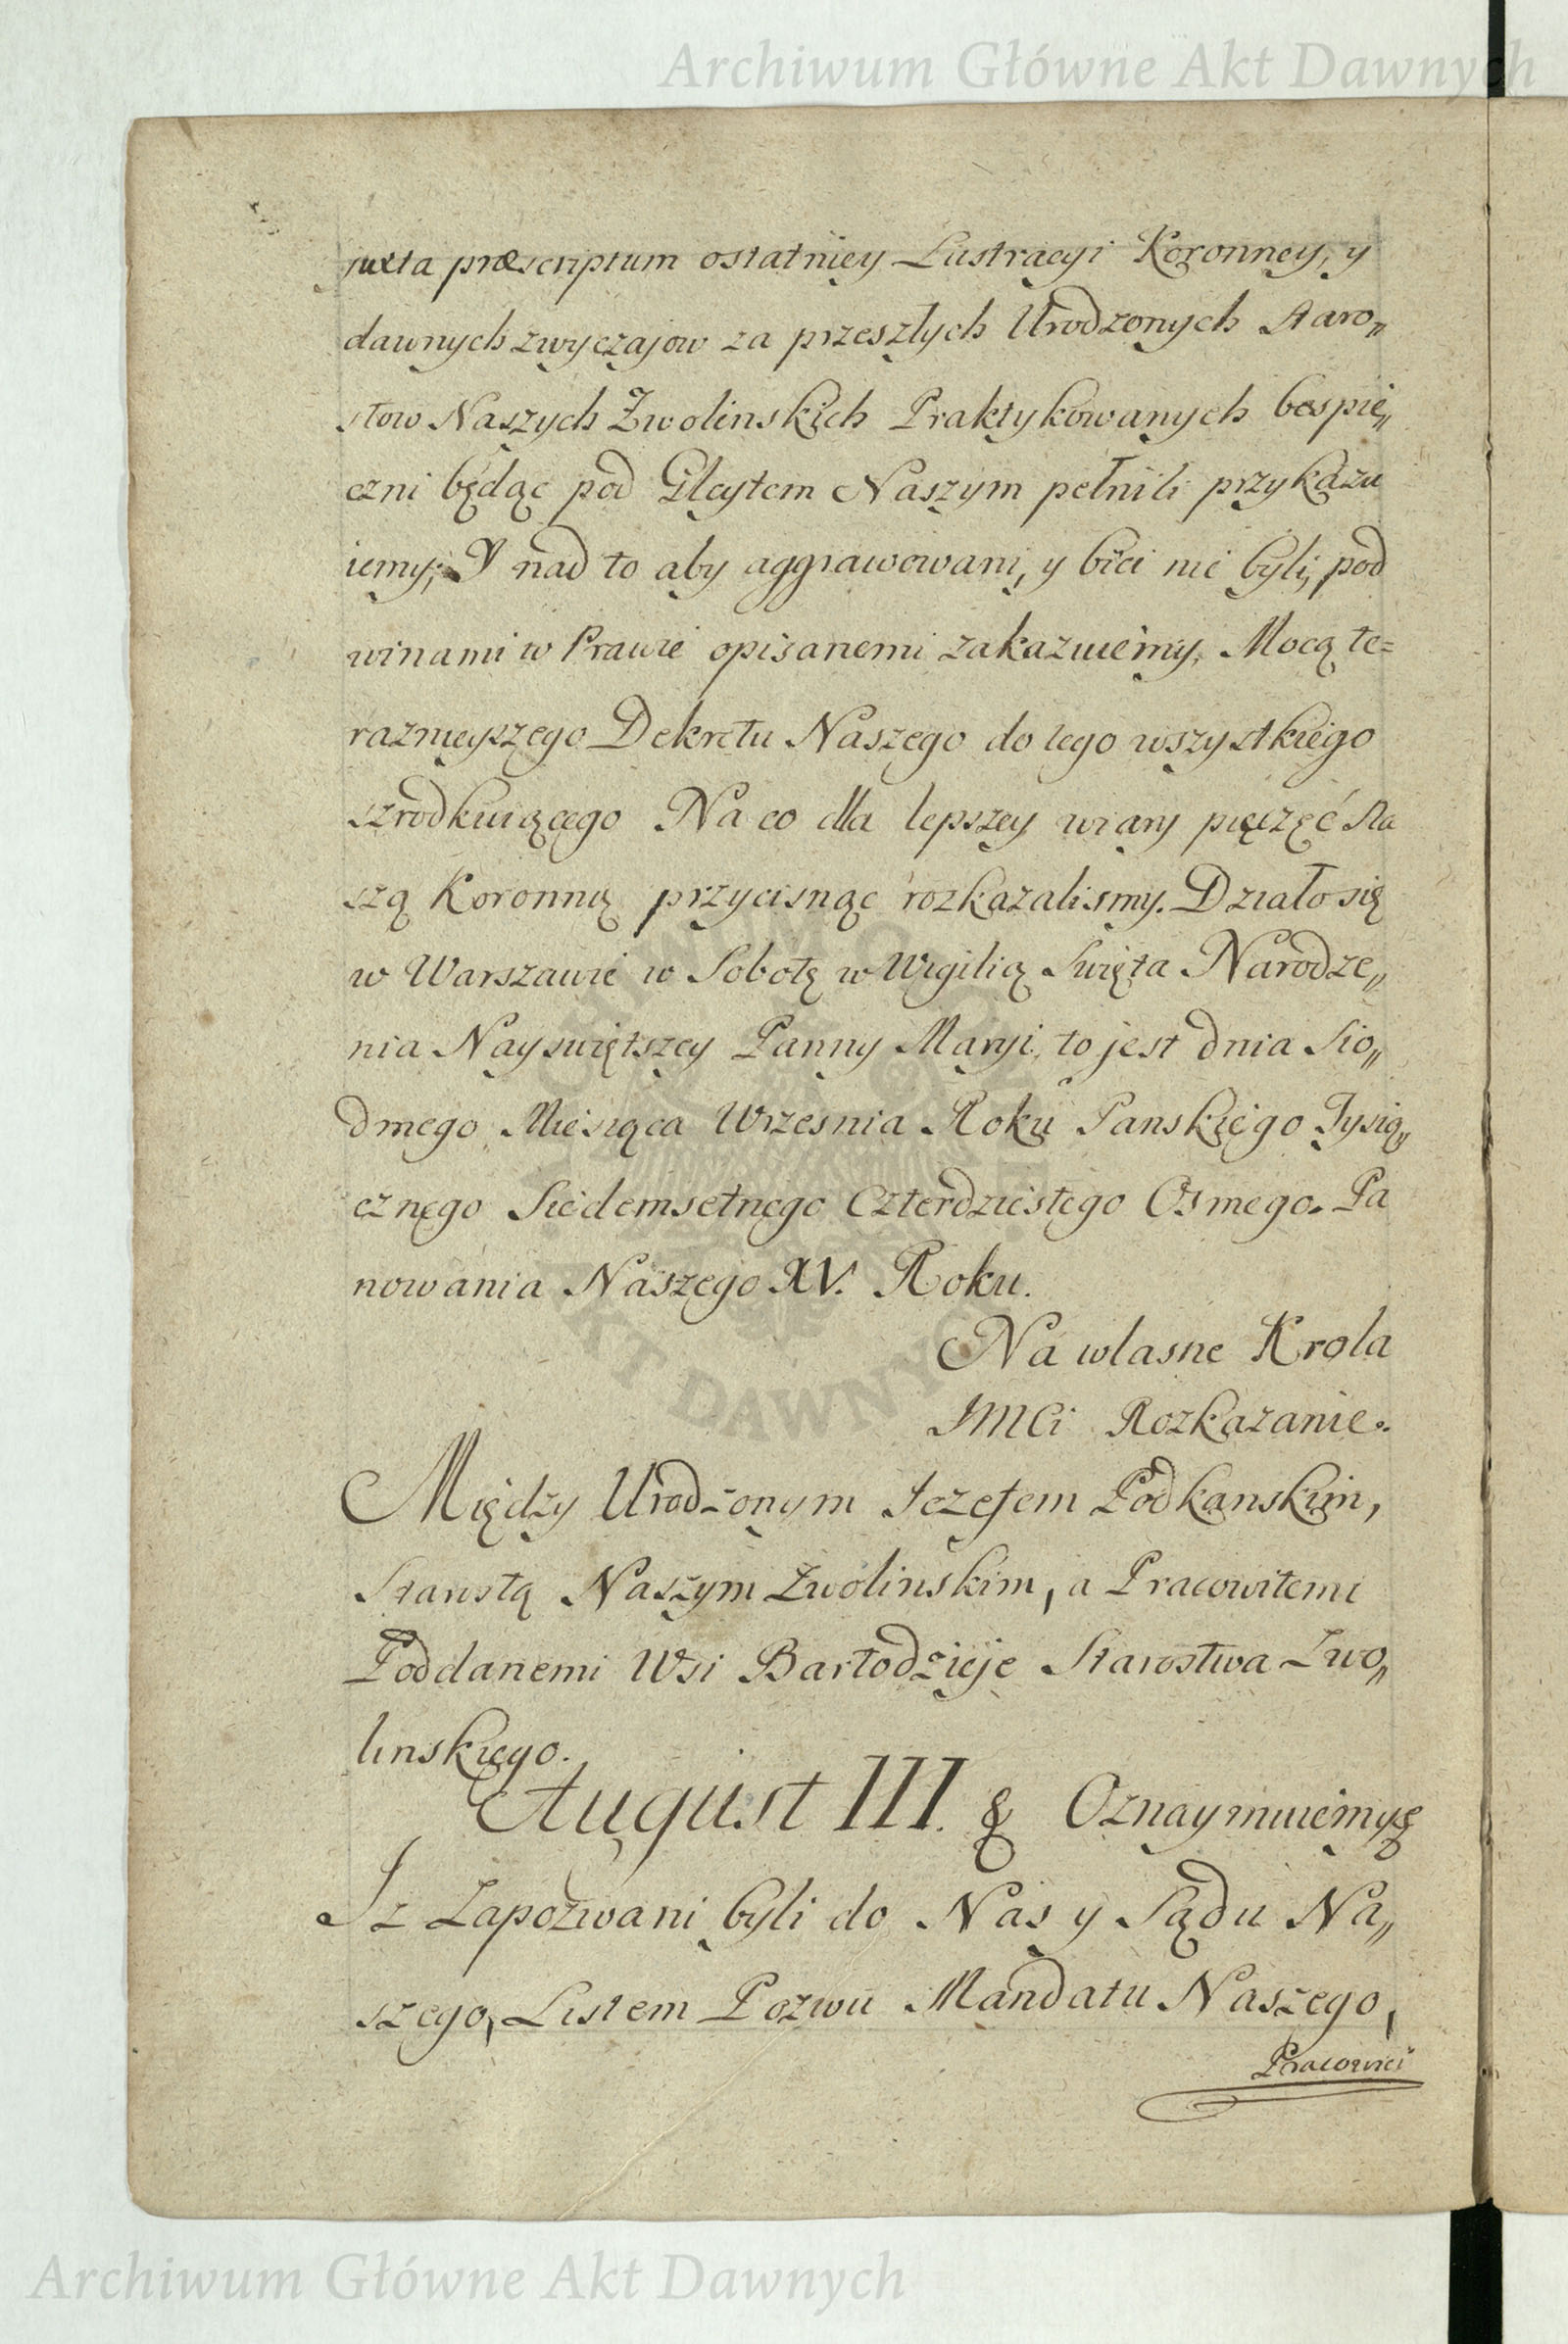 Archiwum Główne Akt Dawnych
juxta præscriptum ostatniey Lustracyi Koronney, y
dawnych zwyczajow za przeszłych Urodzonych Staro„
stow Naszych Zwolinskich Praktykowanych bespie„
czni będąc pod Gleytem Naszym pełnili przykazu
iemy; Y nad to aby aggrawowani, y bici nie byli, pod
winami w Prawie opisanemi zakazuiemy, Mocą te=
raznieyszego Dekretu Naszego do tego wszystkiego
szrodkuiącego Na co dla lepszey wiary pięczęć Na
szą Koronną przycisnąc rozkazalismy. Działo się
w Warszawie w Sobotę w Wigilią Swięta Narodze„
nia Nayswiętszey Panny Maryi, to jest dnia Sio„
dmego Miesiąca Wrzesnia Roku Panskiego Tysią„
cznego Siedemsetnego Czterdziestego Osmego. Pa
nowania Naszego XV. Roku.
Na wlasne Krola
JMCi Rozkazanie.
Między Urodzonym Jozefem Podkanskim,
Starostą Naszym Zwolinskim, a Pracowitemi
Poddanemi Wsi Bartodzieje Starostwa Zwo„
linskiego.
August III. & Oznaymuiemy &
Iz Zapozwani byli do Nas y Sądu Na„
szego, Listem Pozwu Mandatu Naszego,
Pracowici
ARCHIWUM GŁÓWNE AKT DAWNYCH
Archiwum Główne Akt Dawnych